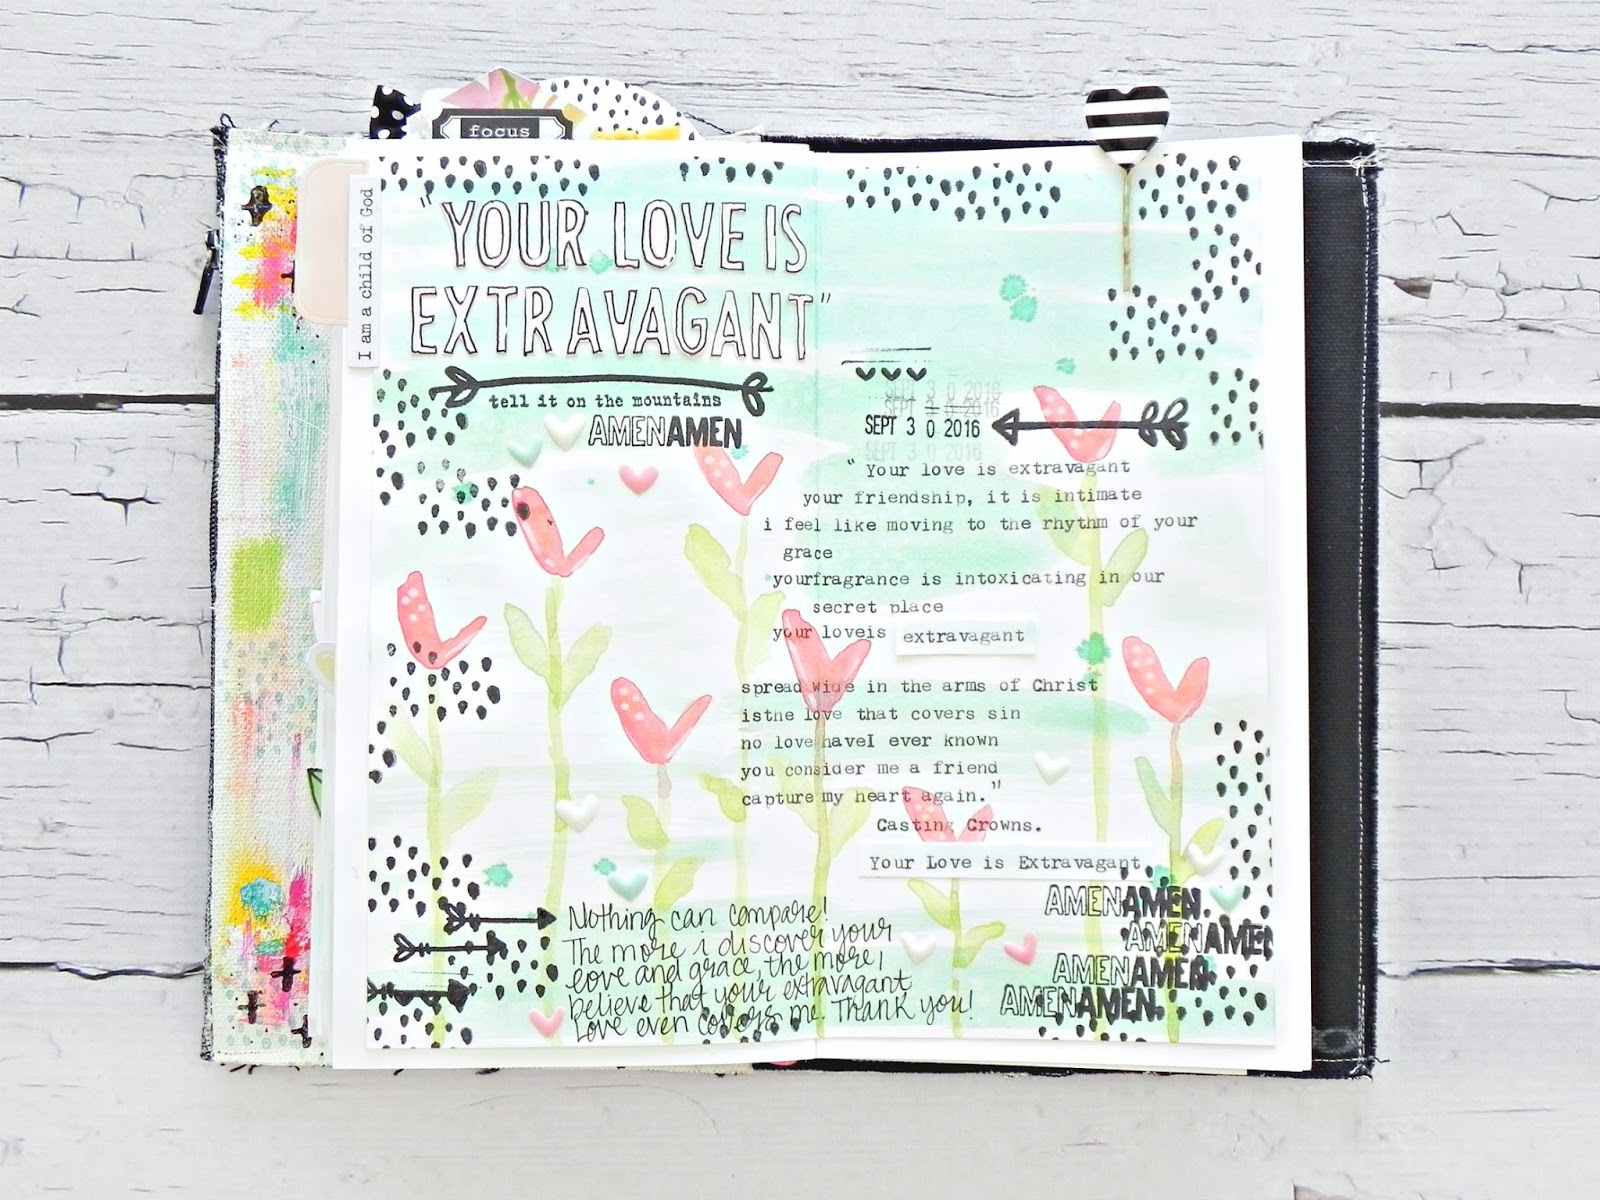 focus
I am a child of God
"YOUR LOVE IS
EXTRAVAGANT"
tell it on the mountains
AMENAMEN
SEPT 3 0 2016
SEPT 3 0 2016
SEPT 3 0 2016
SEPT 3 0 2016
"Your love is extravagant
your friendship, it is intimate
i feel like moving to the rhythm of your
grace
yourfragrance is intoxicating in our
secret place
your loveis extravagant
spread wide in the arms of Christ
isthe love that covers sin
no love haveI ever known
you consider me a friend
capture my heart again."
Casting Crowns.
Your Love is Extravagant.
Nothing can compare!
The more i discover your
love and grace, the more i
believe that your extravagant
love even covers me. Thank you!
AMENAMEN.
AMENAMEN
AMENAMEN.
AMENAMEN.